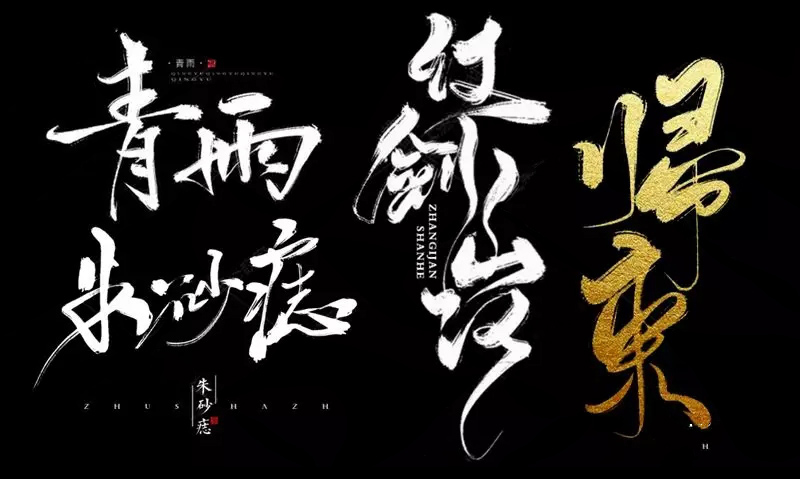 青雨
·青雨·
QINGYUQINGYUQINGYU
QINGYU
朱砂痣
朱砂痣
ZHUSHAZH
仗劍山河
ZHANGIJAN
SHANHE
归来
H